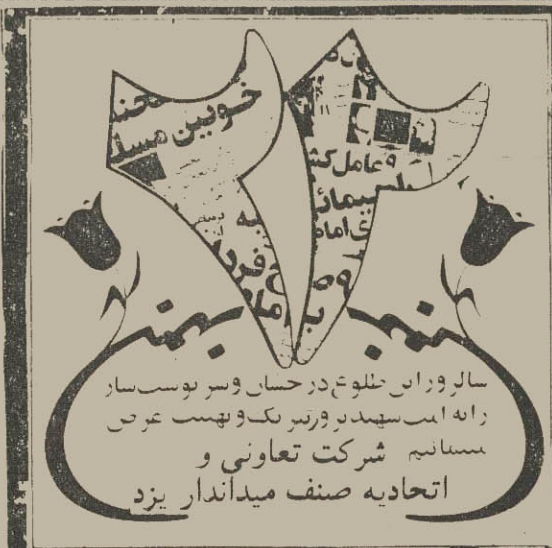 ۲۲
خونین
و عامل
بهمن
بهمن
سالروز این طلوع درخشان و سرنوشت ساز
را به امت شهید پرور تبریک و تهنیت عرض
مینمائیم شرکت تعاونی و
اتحادیه صنف میداندار یزد